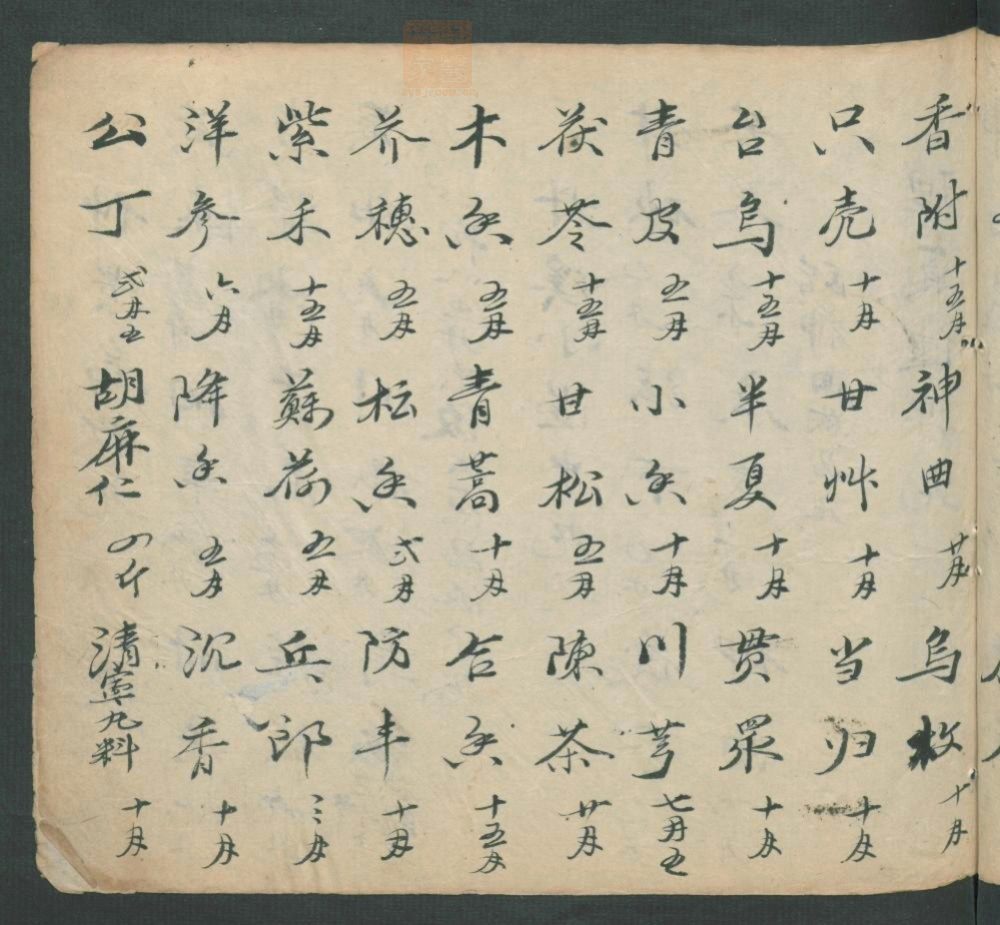 香附 十五月 神曲 廿月 乌枚 十月
只壳 十月 甘艸 十月 当归 十月
台乌 十五月 半夏 十月 贯眾 十月
青皮 五月 小香 十月 川芎 七月五
茯苓 十五月 甘松 五月 陳茶 廿月
木香 五月 青蒿 十月 合香 十五月
芥穗 五月 枟香 弍月 防丰 十月
紫禾 十五月 蘇荷 五月 兵郎 三月
洋參 六月 降香 五月 沉香 十月
公丁 弍月五 胡麻仁 四斤 清寧丸料 十月